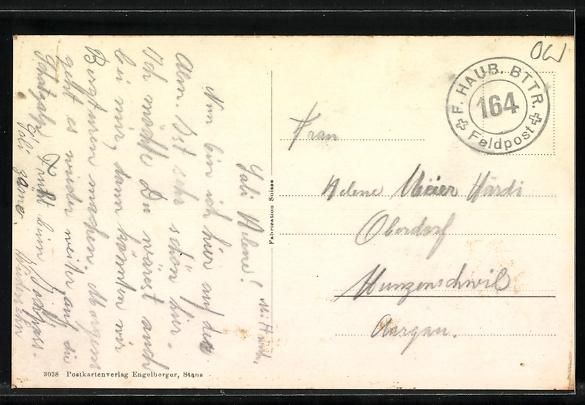 Sali Helene!
Nun bin ich hier auf der
Alm. Ist sehr schön hier.
Ich möchte Du wärest auch
bei mir, dann könnten wir
Bergtouren machen. Morgen
geht es wieder weiter auf die
F. HAUB. BTTR.
164
Feldpost
Frau
Helene Meier Härdi
Oberdorf
Hunzenschwil
Aargau.
Fabrication Suisse
3038 Postkartenverlag Engelberger, Stans